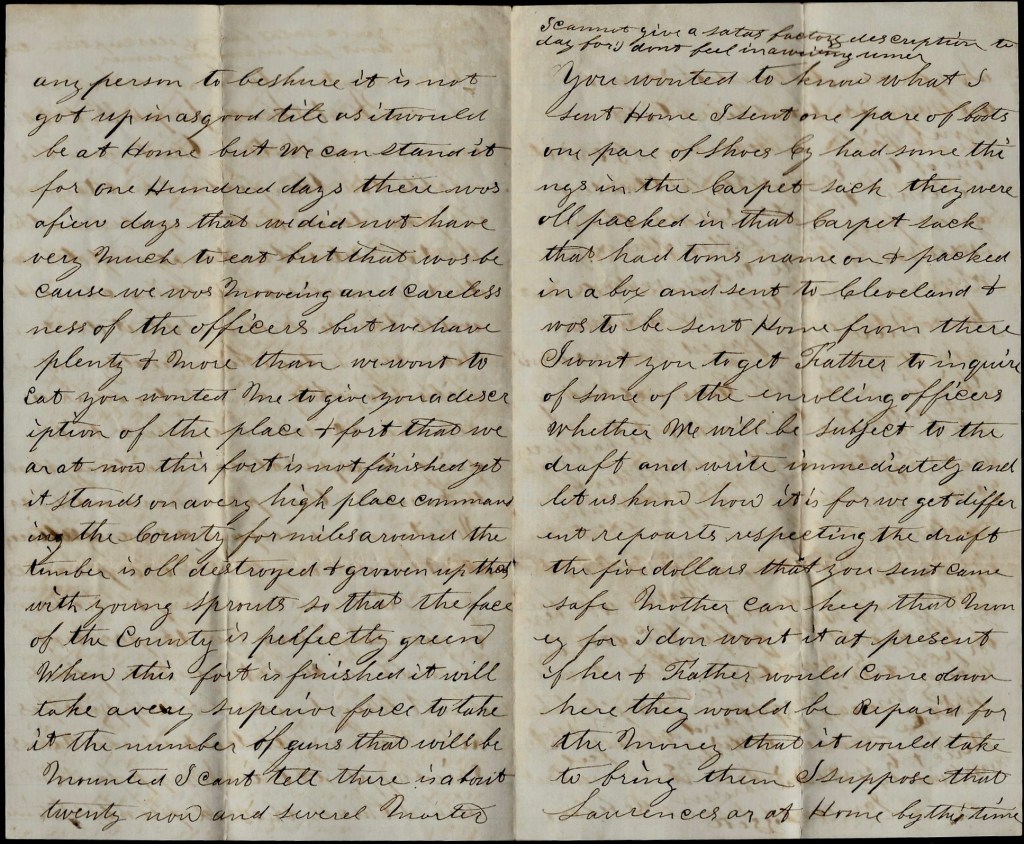 any person to beshure it is not
got up in as good tile as it would
be at Home but We can stand it
for one Hundred days there wos
a fiew days that we did not have
very Much to eat but that wos be
cause we wos Mooveing and careless
ness of the officers but we have
plenty & More than we wont to
Eat you wonted Me to give you a descr
iption of the place & fort that we
ar at now this fort is not finished yet
it stands on a very high place command
ing the County for miles around the
timber is oll destroyed & growen up thar
with young sprouts so that the face
of the County is perfectly green
When this fort is finished it will
take a very superior force to take
it the number of guns that will be
Mounted I cant tell there is about
twenty now and severel Morter
I cannot give a satas factory description to
day for I dont feel in a writing umer
You wonted to know what I
sent Home I sent one pare of boots
one pare of Shoes Cy had some thi
ngs in the Carpet sack they were
oll packed in that Carpet sack
that had toms name on & packed
in a box and sent to Cleveland &
wos to be sent Home from there
I wont you to get Father to inquire
of some of the enrolling officers
Whether We will be subject to the
draft and write immediately and
let us know how it is for we get differ
ent repoarts respecting the draft
the five dollars that you sent came
safe Mother can keep that Mon
ey for I don wont it at present
if her & Father would come down
here they would be repaid for
the Money that it would take
to bring them I suppose that
Laurences ar at Home by this time